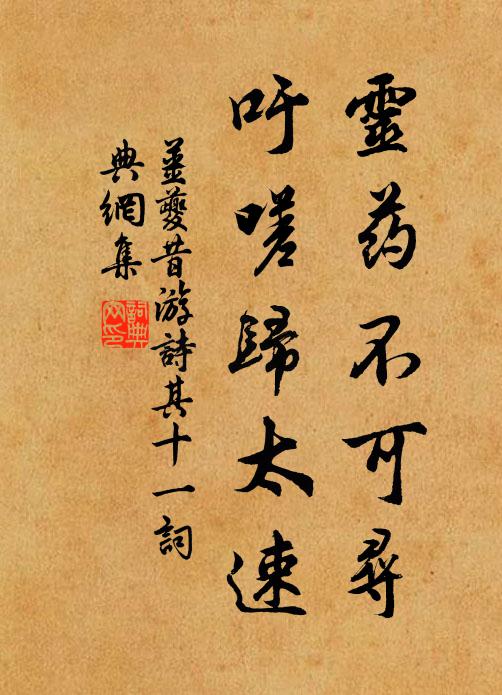 靈药不可尋
吁嗟歸太速
姜夔昔游詩其十一詞
典網集
詞典网印